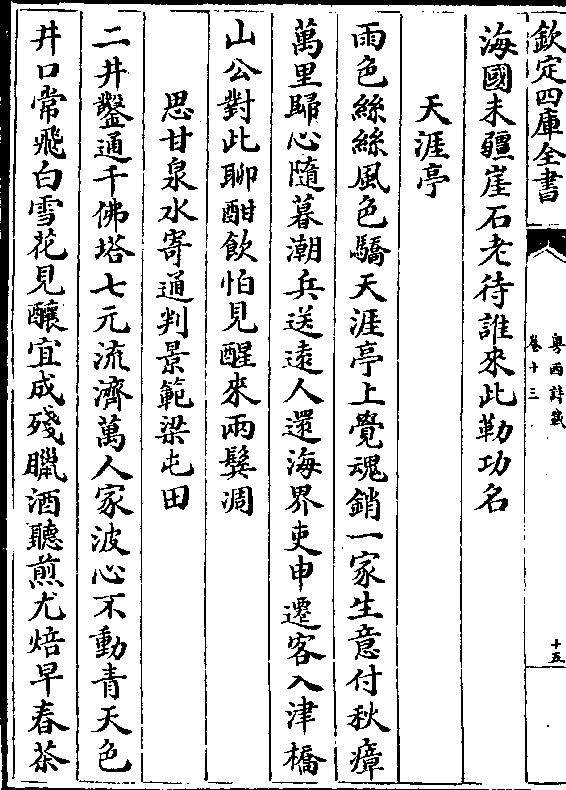 欽定四庫全書
粵西詩載
卷十三
十五
海國未疆崖石老待誰來此勒功名
天涯亭
雨色絲絲風色驕天涯亭上覺魂銷一家生意付秋瘴
萬里歸心隨暮潮兵送遠人還海界吏申遷客入津橋
山公對此聊酣飲怕見醒來兩鬂凋
思甘泉水寄通判景範梁屯田
二井鑿通千佛塔七元流濟萬人家波心不動青天色
井口常飛白雪花見釀宜成殘臘酒聽煎尤焙早春茶